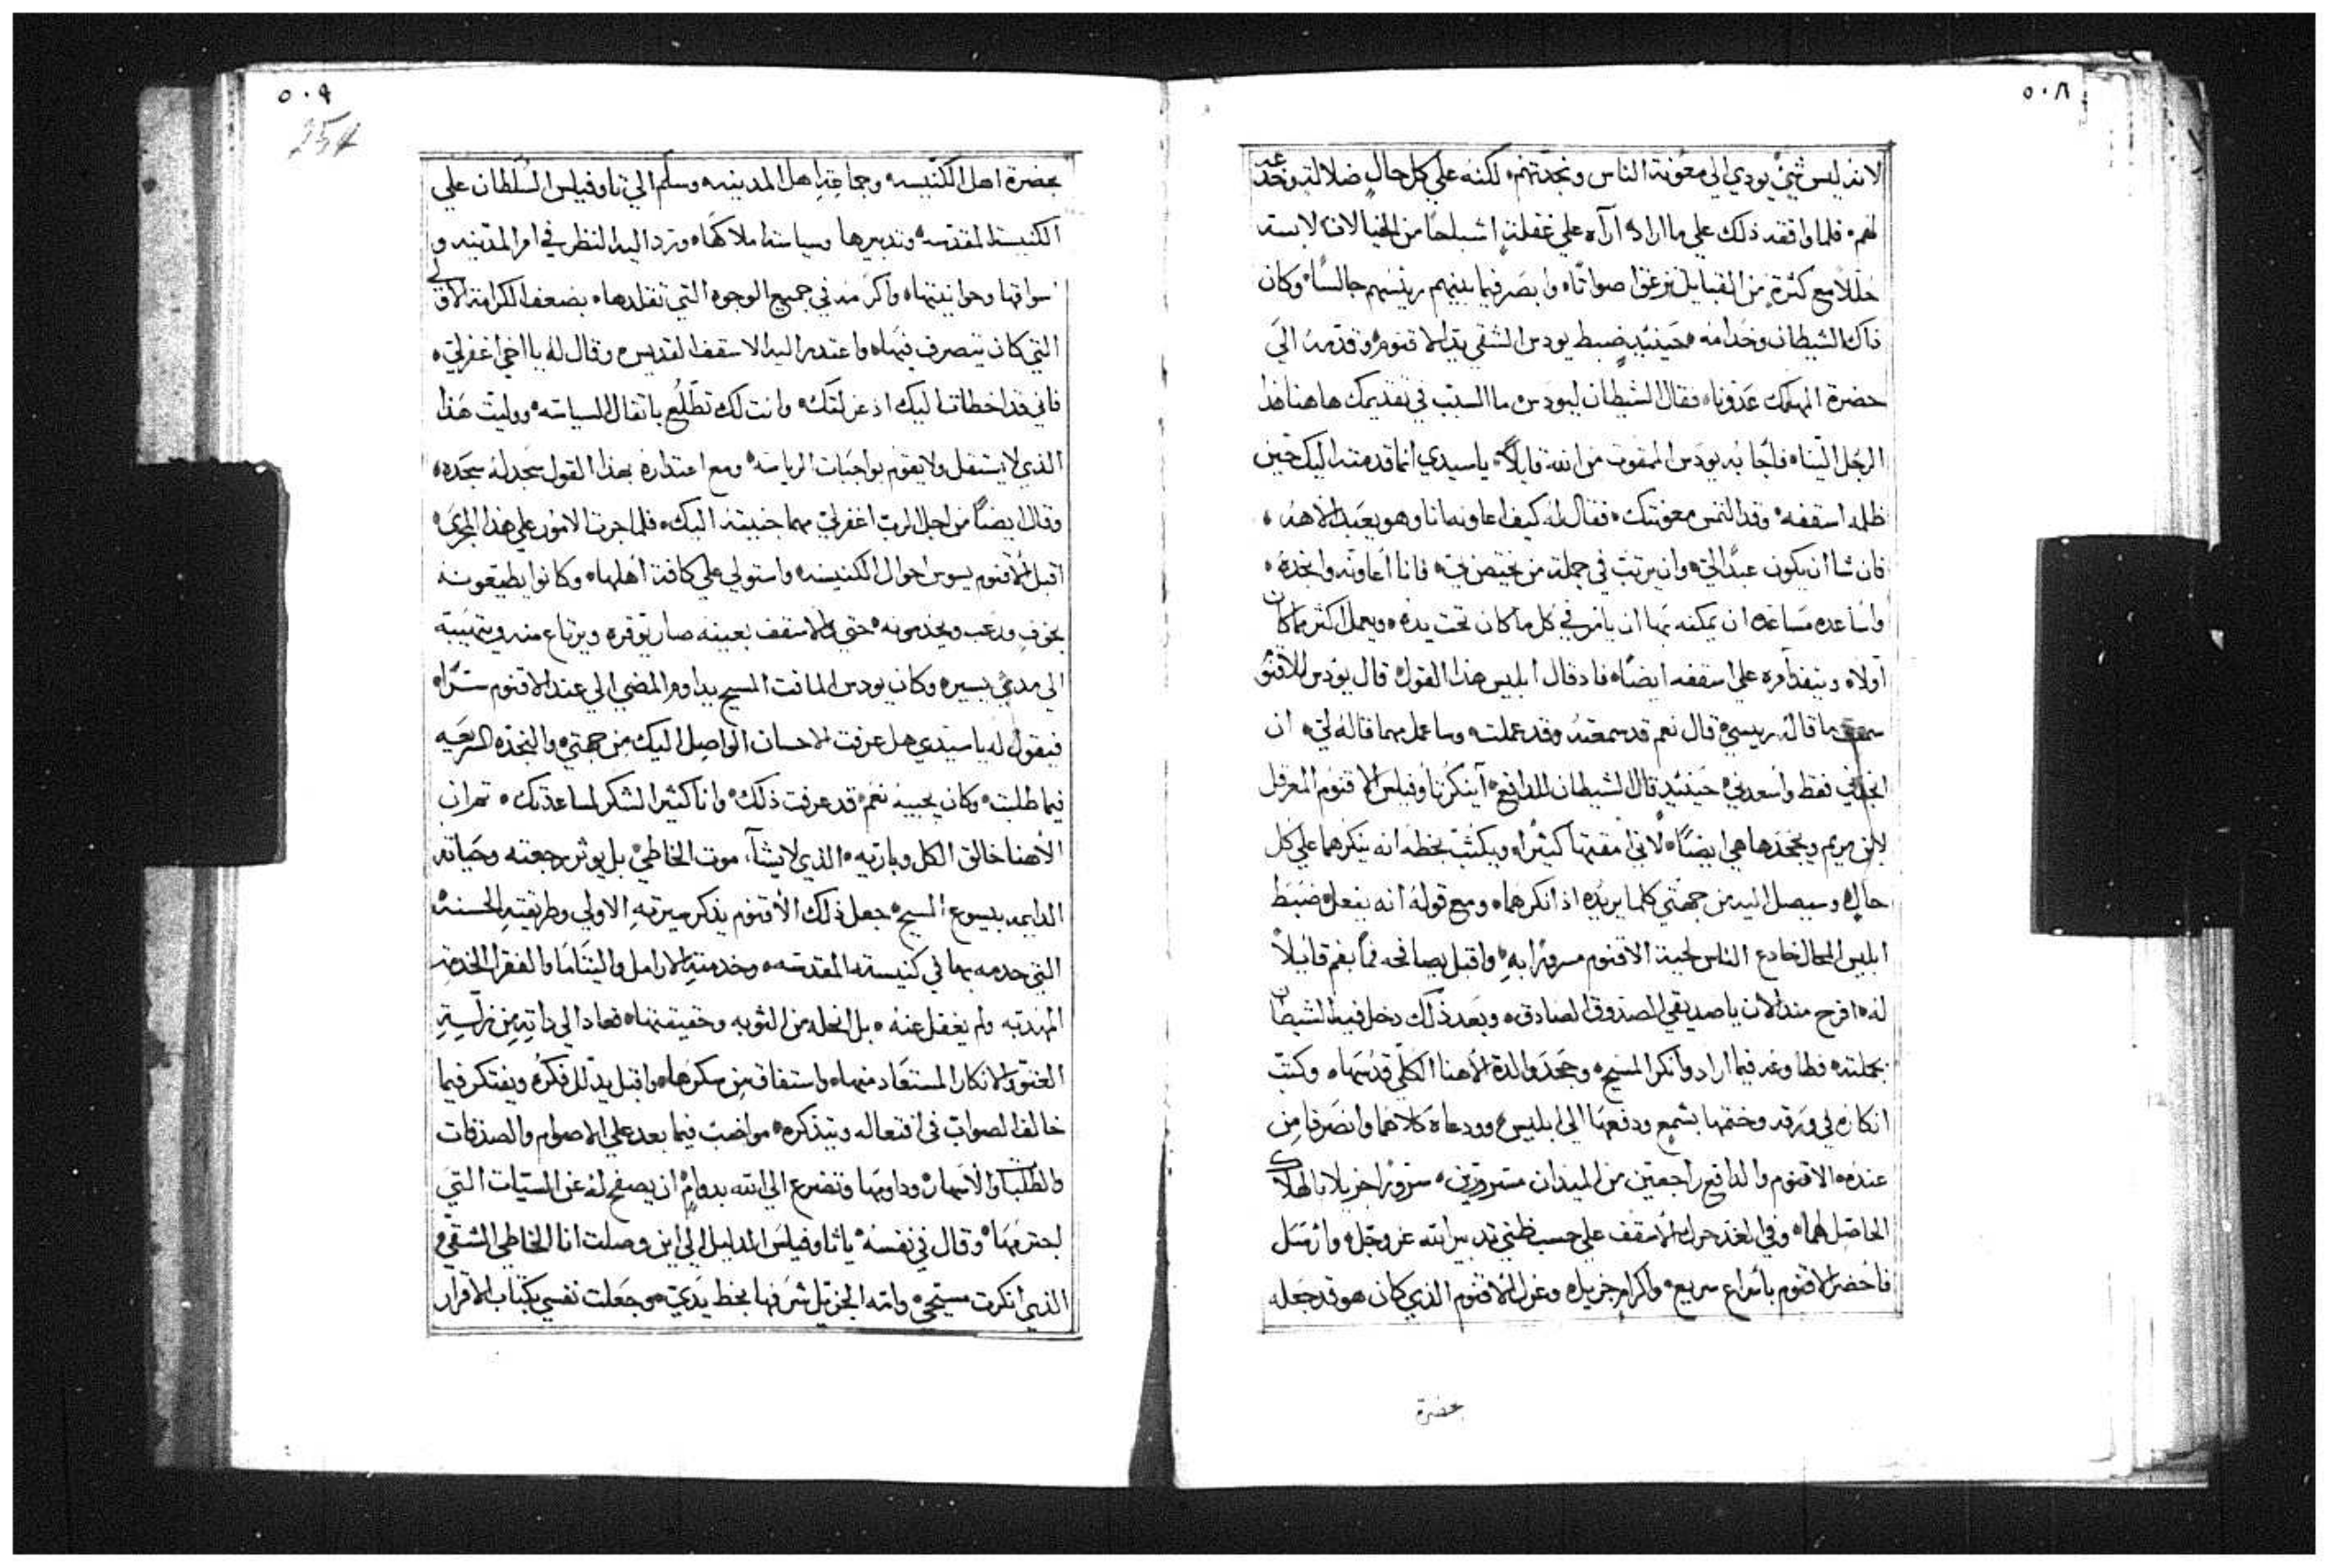 ٥٠٨
لانه ليس شيء يودي الي معونة الناس ونجدتهم، لكنه علي كل حالٍ ضلالة وخدعه
لهم، فلما وافقه ذلك علي ما اراده اراه علي غفلتٍ اشباحًا من الخيالات لابسة
حللاً مع كثرةٍ من القبايل يزعقوا صواتًا، وابصر فيما بينهم ريئسهم جالسًا، وكان
ذاك الشيطان وخدامه، حينئيدٍ ضبط يودس الشقي يد الاقنوم وقدمه الي
حضرة المهلك عدونا، فقال الشيطان ليودس ما السبب في تقديمك هاهنا هذا
الرجل الينا، فاجابه يودس الممقوت من الله قايلاً، يا سيدي انما قدمته اليك حين
ظلمه اسقفه، وقد التمس معونتك، فقال له كيف اعاونه انا وهو يعبد الاهه،
فان شا ان يكون عبدًا لي، وان يرتب في جملة من يختص بي، فانا اعاونه وانجده،
واساعده مساعدة ان يمكنه بها ان يامر في كل ما كان تحت يده، ويعمل اكثر مما كان
اولاً، وينفذ امره علي اسقفه ايضًا، فاد قال ابليس هذا القول، قال يودس للاقنوم
سمعت ما قاله رييسي، قال نعم قد سمعته وقد عملته وساعمل مهما قاله لي، ان
انجدني فقط واسعدني، حينئيدٍ قال الشيطان للدافع، اينكر تاوفيلس الاقنوم المعزول
لابن مريم ويجحدها هي ايضًا، لاني امقتها كثيرًا، ويكتب بخطه انه ينكرهما علي كل
حال، وسيصل اليه من جهتي كلما يريده اذ انكرهما، ومع قوله انه يفعل، ضبط
ابليس المحال خادع الناس لحية الاقنوم مسرورًا به، واقبل يصافحه فمًا بفم قايلاً
له، افرح منذ الان يا صديقي الصدوق الصادق، وبعد ذلك دخل فيه الشيطان
بجملته، فطاوعه فيما اراد وانكر المسيح، وجحد والدة الاهنا الكلي قدسها، وكتب
انكاره في ورقه وختمها بشمعٍ ودفعها الي ابليس، وودعاه كلاهما وانصرفا من
عنده، الاقنوم والدافع راجعين من الميدان مسرورين، سرورًا جزيلا بالهلاك
الحاصل لهما، وفي الغد حرك الاسقف علي حسب ظني تدبير الله عز وجل، وارسل
فاحضر الاقنوم باسراع سريع، واكرام جزيل، وعزل الاقنوم الذي كان هو قد جعله
بحضرة
٥٠٩
254
بحضرة اهل الكنيسه وجماعة اهل المدينه، وسلم الي تاوفيلس السلطان علي
الكنيسه المقدسه وتدبيرها وسياسة املاكها، ورد اليه النظر في امر المدينه و
اسواقها وحوانيتها، واكرمه في جميع الوجوه التي تقلدها، بضعف الكرامة الاولي
التي كان يتصرف فيها، واعتدر اليه الاسقف القديس، وقال له يا اخي اغفر لي،
فاني قد اخطات اليك اذ عزلتك، وانت لك تطلع باثقال السياسه، ووليت هذا
الذي لا يستقل ولا يقوم بواجبات الرياسه، ومع اعتذاره بهذا القول سجد له سجده،
وقال ايضًا من اجل الرب اغفر لي مهما جنيته اليك، فلما جرت الامور علي هذا المجري،
اقبل الاقنوم يسوس احوال الكنيسه واستولي علي كافة اهلها، وكانوا يطيعونه
بخوفٍ ورعب ويخدمونه، حتي والاسقف بعينه صار يوقره ويرتاع منه ويتهيبه
الي مدةٍ يسيره، وكان يودس الماقت المسيح يداوم المضي الي عند الاقنوم سرًا،
فيقول له يا سيدي هل عرفت الاحسان الواصل اليك من جهتي، والنجده السريعه
فيما طلبت، وكان يجيبه نعم، قد عرفت ذلك، وانا كثير الشكر لمساعدتك، ثم ان
الاهنا خالق الكل وباريه، الذي لا يشآء موت الخاطي، بل يوثر رجعته وحياته
الدايمه بيسوع المسيح، جعل ذلك الاقنوم يذكر سيرته الاولي وطريقته الحسنه
التي خدمه بها في كنيسته المقدسه، وخدمته الارامل واليتاما والفقرا الخدمة
المهذبه، ولم يغفل عنه، بل انحله من التوبه وحقيقتها، فعاد الي ذاته من تراسية
العتو والانكار المستعاد منهما، واستفاق من سكرهما، واقبل يذلل فكره ويفتكر فيما
خالف الصواب في افتعاله ويتذكره، مواضب فيما بعد علي الاصوام والصدقات
والطلبات والاسهار، وداومها وتضرع الي الله بدوامٍ ان يصفح له عن السيات التي
اجترمها، وقال في نفسه، يا تاوفيلس الذليل الي اين وصلت انا الخاطي الشقي،
الذي انكرت مسيحي، وامه الجزيل شرفها بخط يدي، وجعلت نفسي بكتاب الاقرار